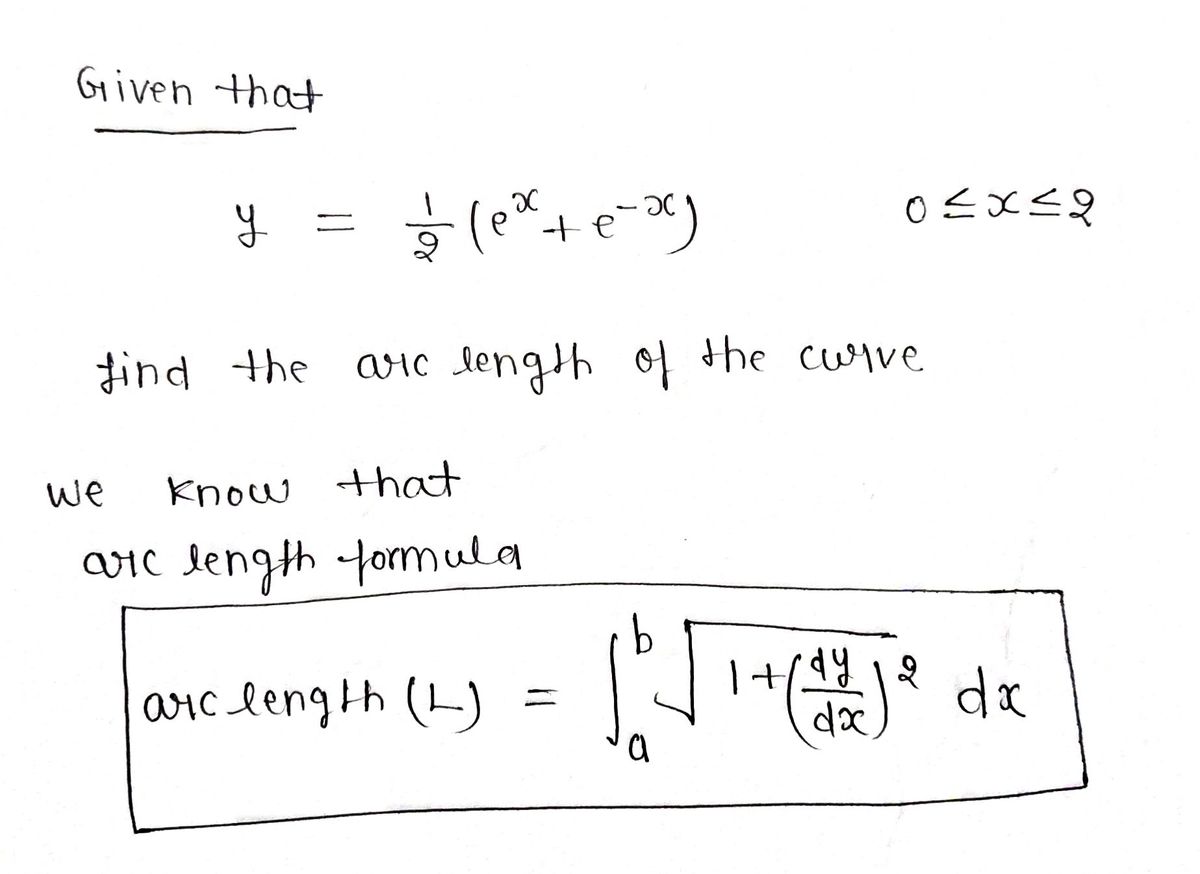 Given that
y = 1/2 (e^x + e^-x) 0 ≤ x ≤ 2
find the arc length of the curve
we know that
arc length formula
arc length (L) = ∫_a^b √1+(dy/dx)^2 dx